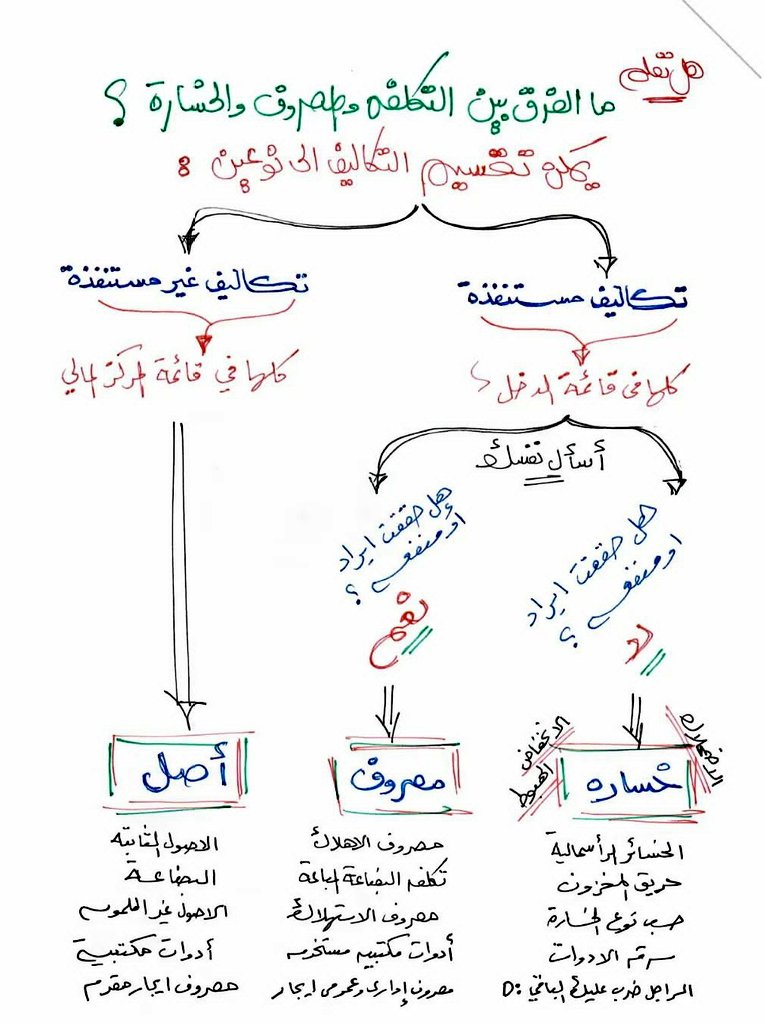 هل تعلم
ما الفرق بين التكلفه والمصروف والخسارة ؟
يمكن تقسيم التكاليف الى نوعين :
تكاليف مستنفذة
تكاليف غير مستنفذة
كلها في قائمة الدخل
كلها في قائمة المركز المالي
أسأل نفسك
هل حققت ايراد
او منفعه ؟
لا
هل حققت ايراد
او منفعه ؟
نعم
الاضمحلال
الانخفاض
الهبوط
خساره
مصروف
أصل
الخسائر الرأسمالية
حريق المخزون
حسب نوع الخسارة
سرقه الادوات
المراجل ضرب عليك الباقي :D
مصروف الاهلاك
تكلفه البضاعة المباعة
مصروف الاستهلاك
أدوات مكتبيه مستخدمه
مصروف إداري وعمومي ايجار
الاصول الثابته
البضاعة
الاصول غير الملموسه
أدوات مكتبية
مصروف ايجار مقدم